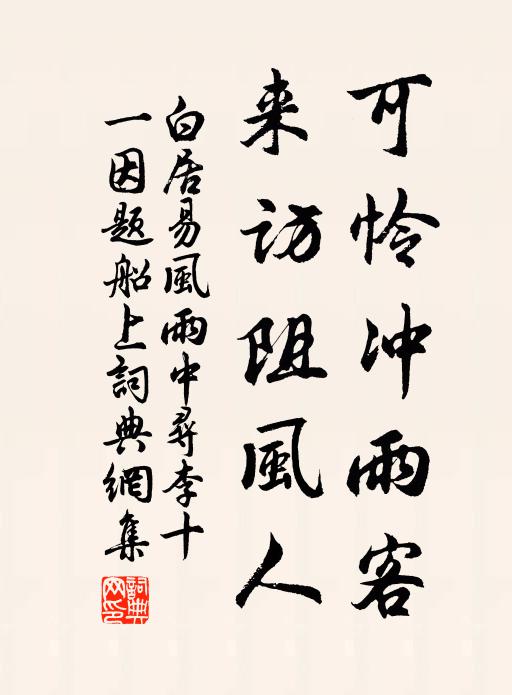 可怜冲雨客
来访阻風人
白居易風雨中尋李十
一因題船上詞典網集
詞典
网印